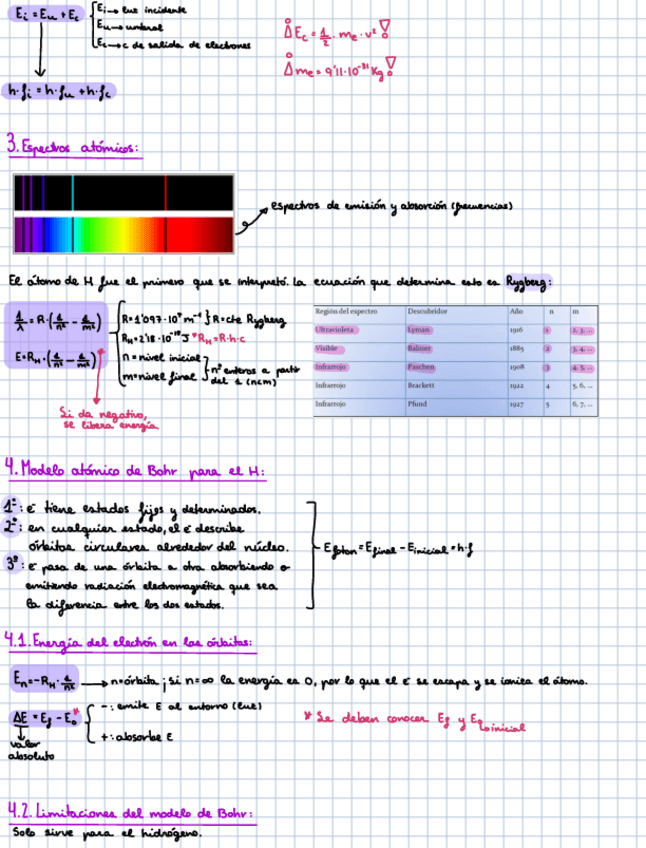 Ei = Eu + Ec
Ei → luz incidente
Eu → umbral
Ec → c de salida de electrones
¡Ec = 1/2 · me · v²!
¡me = 9'11·10⁻³¹ Kg!
h·fi = h·fu + h·fc
3. Espectros atómicos:
espectros de emisión y absorción (frecuencias)
El átomo de H fue el primero que se interpretó. La ecuación que determina esto es Rygberg:
1/λ = R·(1/n² - 1/m²)
E = RH·(1/n² - 1/m²)
R = 1'097·10⁷ m⁻¹ } R = cte Rygberg
RH = 2'18·10⁻¹⁸ J * RH = R·h·c
n = nivel inicial
m = nivel final
nº enteros a partir
del 1 (n<m)
Si da negativo,
se libera energía
Región del espectro Descubridor Año n m
Ultravioleta Lyman 1916 1 2, 3, ...
Visible Balmer 1885 2 3, 4, ...
Infrarrojo Paschen 1908 3 4, 5, ...
Infrarrojo Brackett 1922 4 5, 6, ...
Infrarrojo Pfund 1927 5 6, 7, ...
4. Modelo atómico de Bohr para el H:
1º: e⁻ tiene estados fijos y determinados.
2º: en cualquier estado, el e⁻ describe
órbitas circulares alrededor del núcleo.
3º: e⁻ pasa de una órbita a otra absorbiendo o
emitiendo radiación electromagnética que sea
la diferencia entre los dos estados.
Efoton = Efinal - Einicial = h·f
4.1. Energía del electrón en las órbitas:
En = -RH · 1/n² → n = órbita; si n = ∞ la energía es 0, por lo que el e⁻ se escapa y se ioniza el átomo.
ΔE = Ef - E₀*
- : emite E al entorno (luz)
+ : absorbe E
valor
absoluto
* Se deben conocer Ef y E₀
inicial
4.2. Limitaciones del modelo de Bohr:
Solo sirve para el hidrógeno.